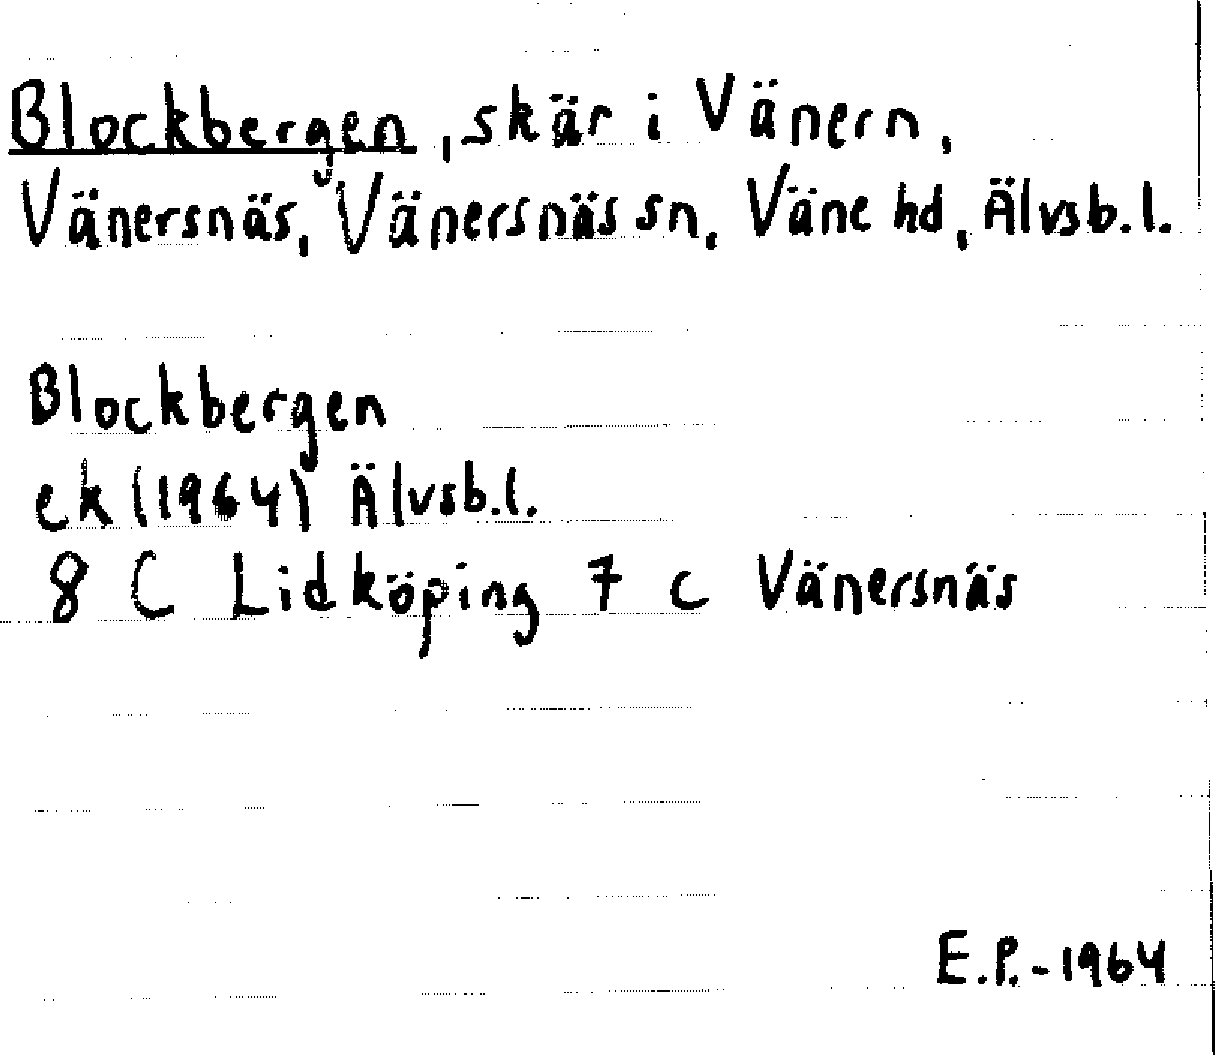 Blockbergen, skär i Vänern,
Vänersnäs, Vänersnäs sn, Väne hd, Älvsb.l.
Blockbergen
ek (1964) Älvsb.l.
8 C Lidköping 7 c Vänersnäs
E.P.-1964